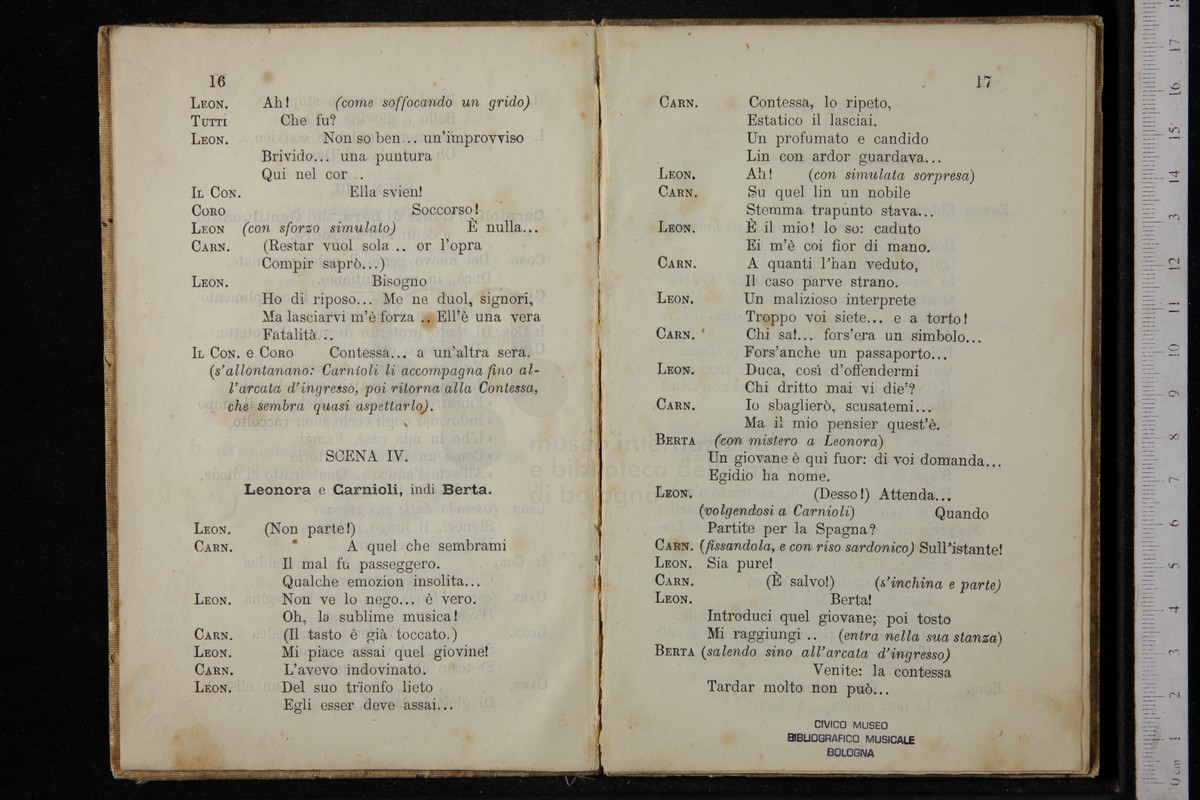 16
LEON. Ah! (come soffocando un grido)
TUTTI Che fu?
LEON. Non so ben .. un'improvviso
Brivido... una puntura
Qui nel cor ..
IL CON. Ella svien!
CORO Soccorso!
LEON (con sforzo simulato) È nulla...
CARN. (Restar vuol sola .. or l'opra
Compir saprò...)
LEON. Bisogno
Ho di riposo... Me ne duol, signori,
Ma lasciarvi m'è forza .. Ell'è una vera
Fatalità...
IL CON. e CORO Contessa... a un'altra sera.
(s'allontanano: Carnioli li accompagna fino al-
l'arcata d'ingresso, poi ritorna alla Contessa,
che sembra quasi aspettarlo).
SCENA IV.
Leonora e Carnioli, indi Berta.
LEON. (Non parte!)
CARN. A quel che sembrami
Il mal fu passeggero.
Qualche emozion insolita...
LEON. Non ve lo nego... è vero.
Oh, la sublime musica!
CARN. (Il tasto è già toccato.)
LEON. Mi piace assai quel giovine!
CARN. L'avevo indovinato.
LEON. Del suo trionfo lieto
Egli esser deve assai...
17
CARN. Contessa, lo ripeto,
Estatico il lasciai.
Un profumato e candido
Lin con ardor guardava...
LEON. Ah! (con simulata sorpresa)
CARN. Su quel lin un nobile
Stemma trapunto stava...
LEON. È il mio! lo so: caduto
Ei m'è coi fior di mano.
CARN. A quanti l'han veduto,
Il caso parve strano.
LEON. Un malizioso interprete
Troppo voi siete... e a torto!
CARN. Chi sa!... fors'era un simbolo...
Fors'anche un passaporto...
LEON. Duca, così d'offendermi
Chi dritto mai vi die'?
CARN. Io sbaglierò, scusatemi...
Ma il mio pensier quest'è.
BERTA (con mistero a Leonora)
Un giovane è qui fuor: di voi domanda...
Egidio ha nome.
LEON. (Desso!) Attenda...
(volgendosi a Carnioli) Quando
Partite per la Spagna?
CARN. (fissandola, e con riso sardonico) Sull'istante!
LEON. Sia pure!
CARN. (È salvo!) (s'inchina e parte)
LEON. Berta!
Introduci quel giovane; poi tosto
Mi raggiungi .. (entra nella sua stanza)
BERTA (salendo sino all'arcata d'ingresso)
Venite: la contessa
Tardar molto non può...
CIVICO MUSEO
BIBLIOGRAFICO MUSICALE
BOLOGNA